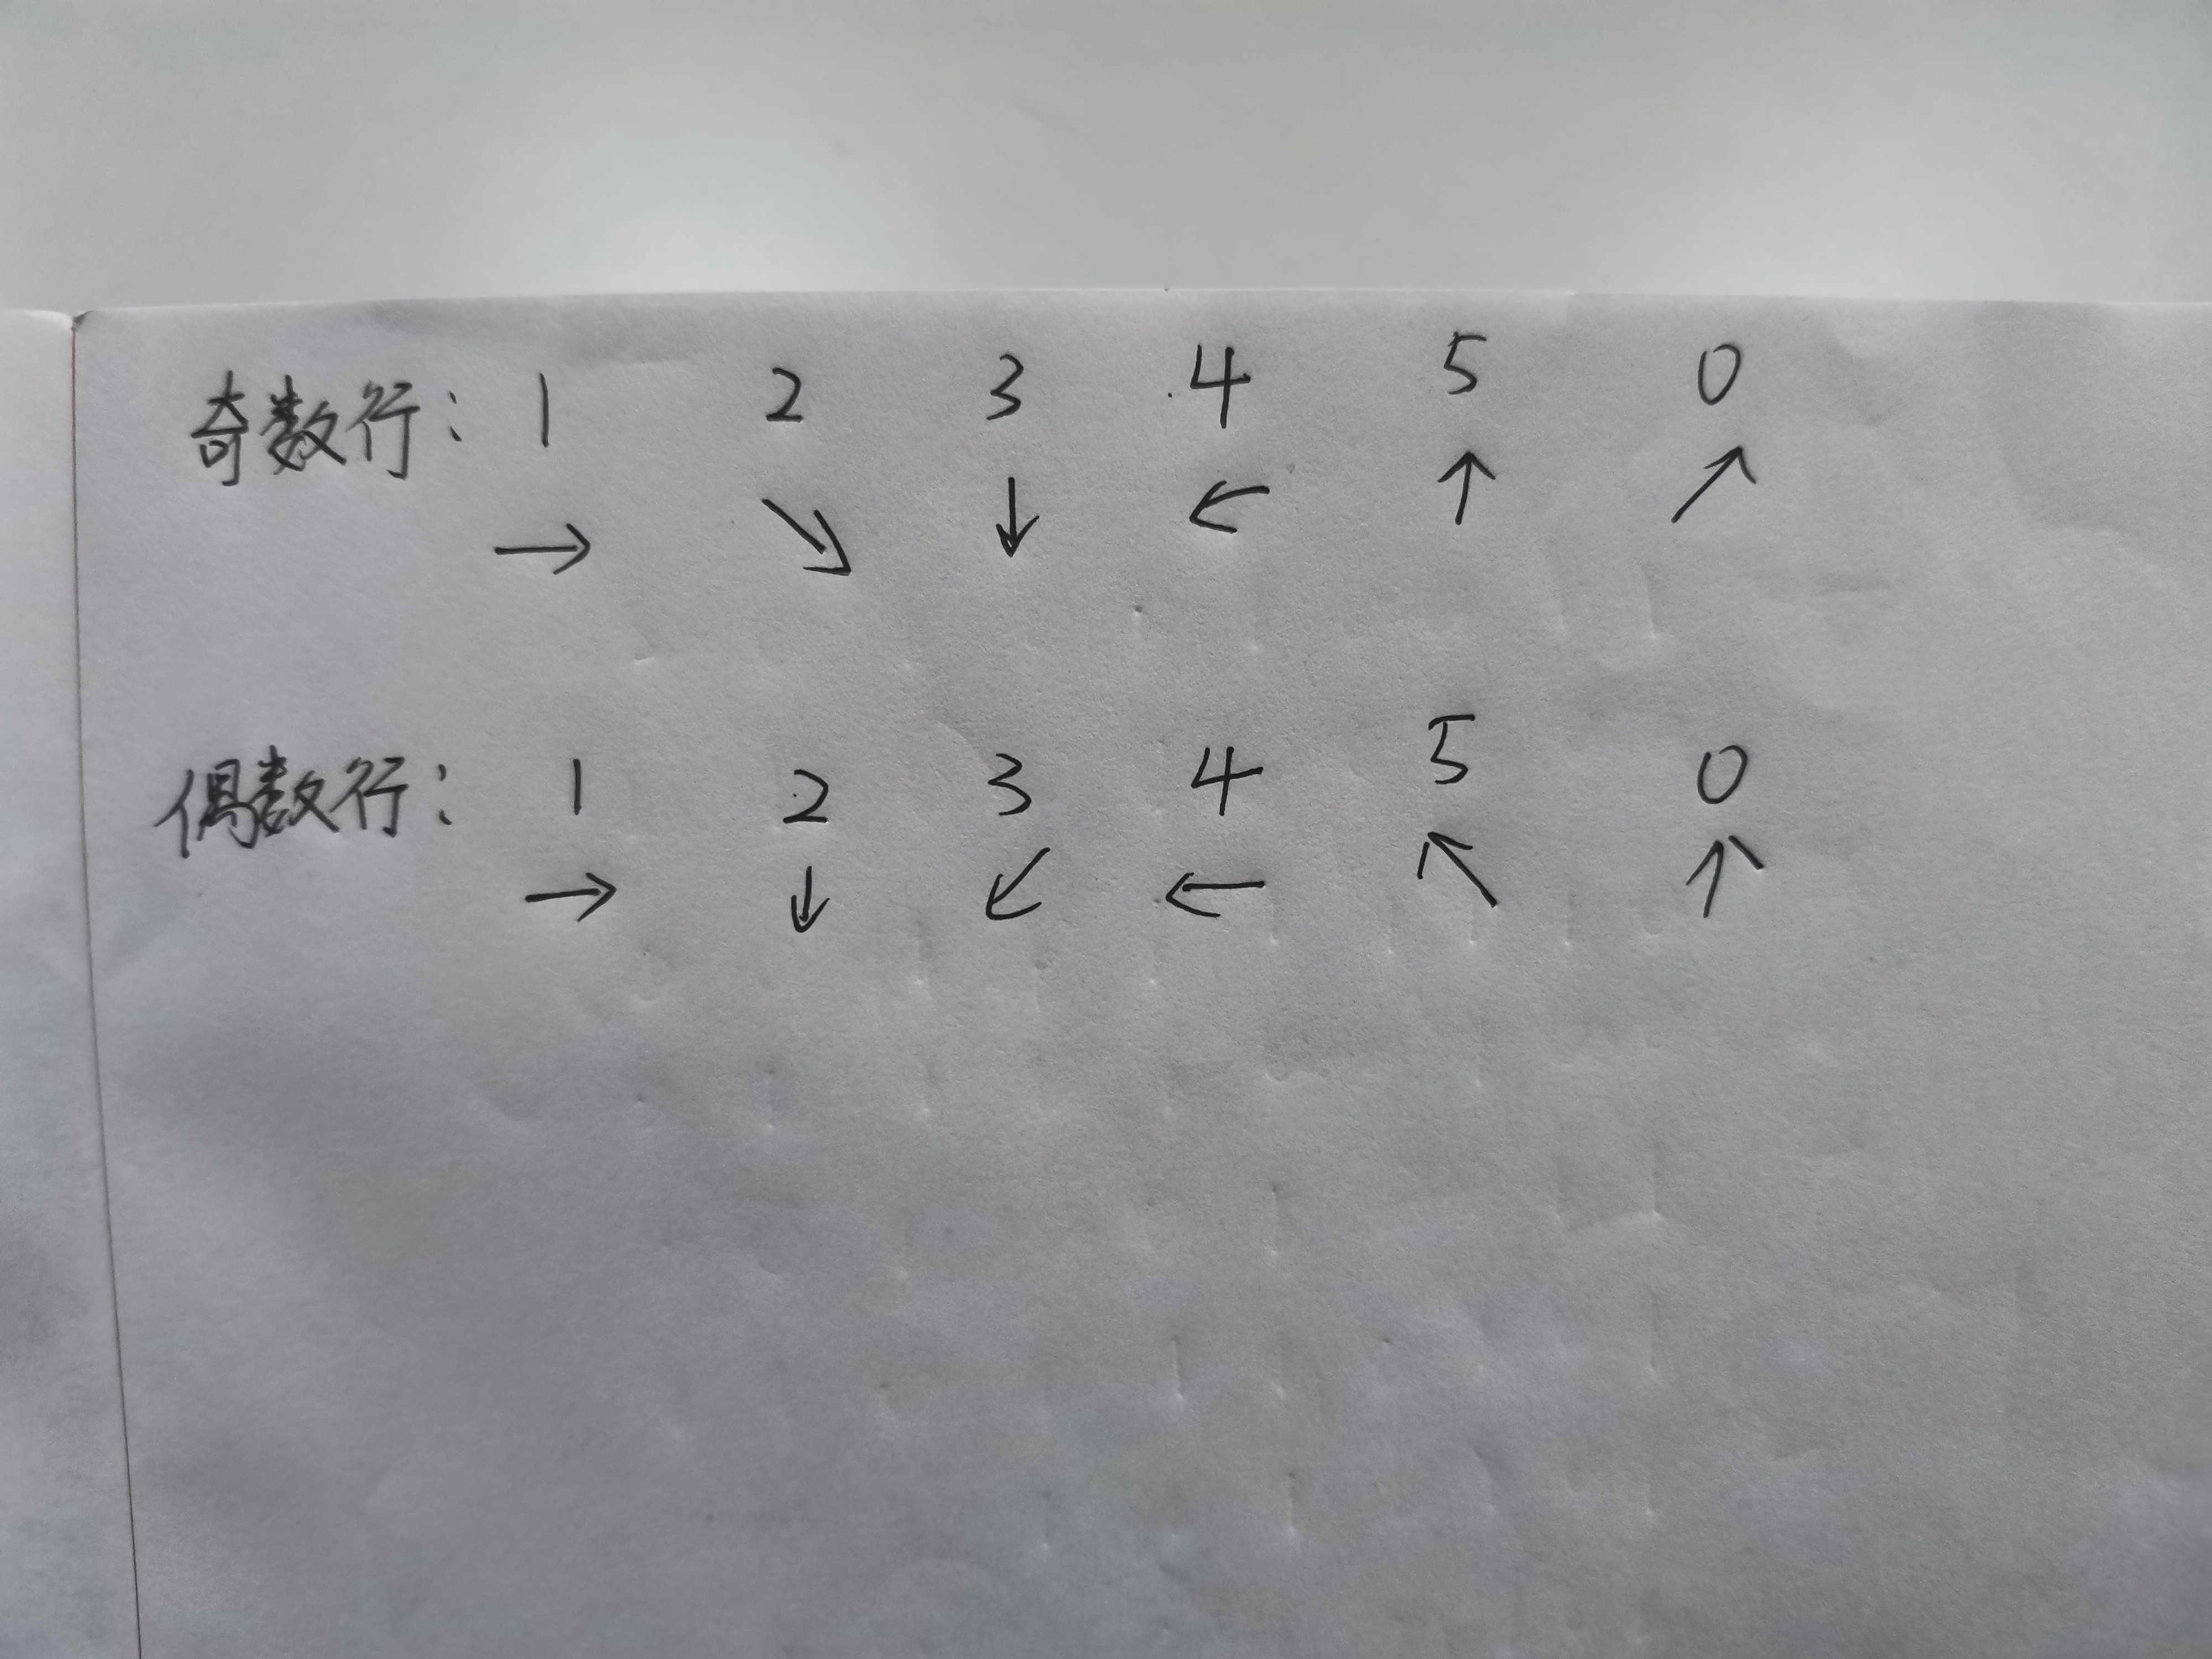 奇数行: 1 2 3 4 5 0
→ ↘ ↓ ← ↑ ↗
偶数行: 1 2 3 4 5 0
→ ↓ ↙ ← ↖ ↑